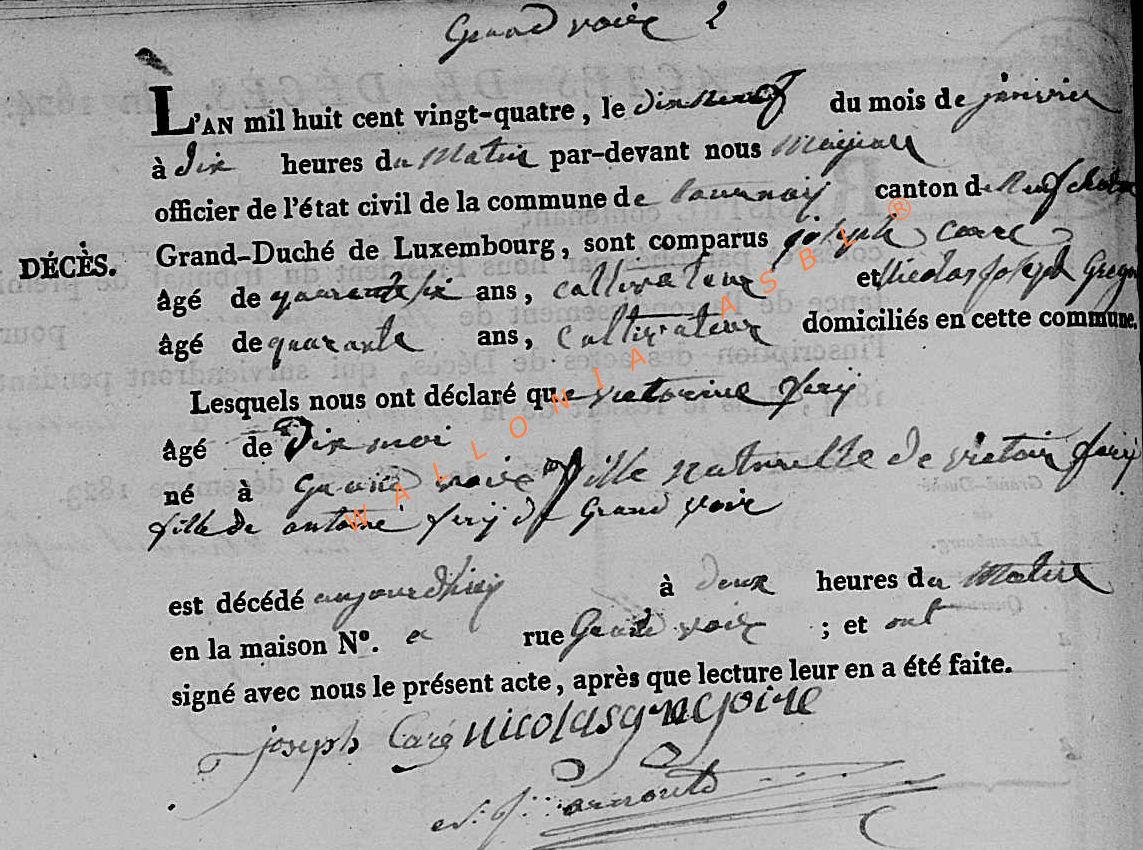 Grand voir 2
L'AN mil huit cent vingt-quatre, le dix neuf du mois de janvier
à dix heures du matin par-devant nous
officier de l'état civil de la commune de tournay canton de Neufchateau
Grand-Duché de Luxembourg, sont comparus joseph
DÉCÈS.
âgé de quarante six ans, cultivateur et Nicolas joseph Gregoi
âgé de quarante ans, cultivateur domiciliés en cette commune,
Lesquels nous ont déclaré que victorine
âgé de dix moi
né à Grand voir fille naturelle de victoir
fille de antoine de Grand voir
est décédé aujourdhuy à deux heures du matin
en la maison Nº. rue Grand voir ; et ont
signé avec nous le présent acte, après que lecture leur en a été faite.
joseph Caré nicolas gregoire
WALLONIA ASBL ®